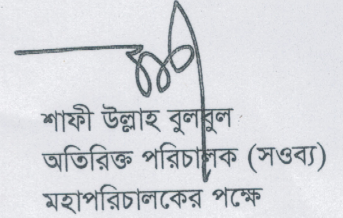 শাফী উল্লাহ বুলবুল
অতিরিক্ত পরিচালক (সওব্য)
মহাপরিচালকের পক্ষে